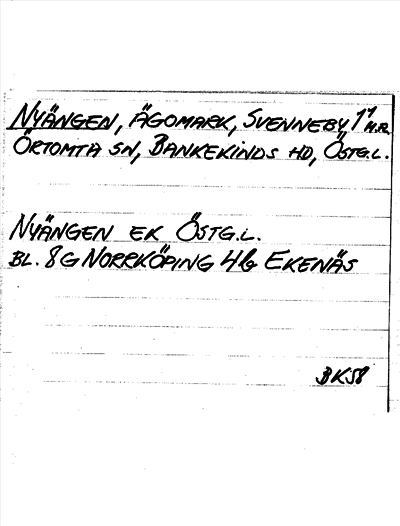 NYÄNGEN, ÄGOMARK, SVENNEBY 1¹ H.R.
ÖRTOMTA SN, BANKEKINDS HD, ÖSTG.L.
NYÄNGEN EK ÖSTG.L.
BL. 8G NORRKÖPING 4b EKENÄS
BK58